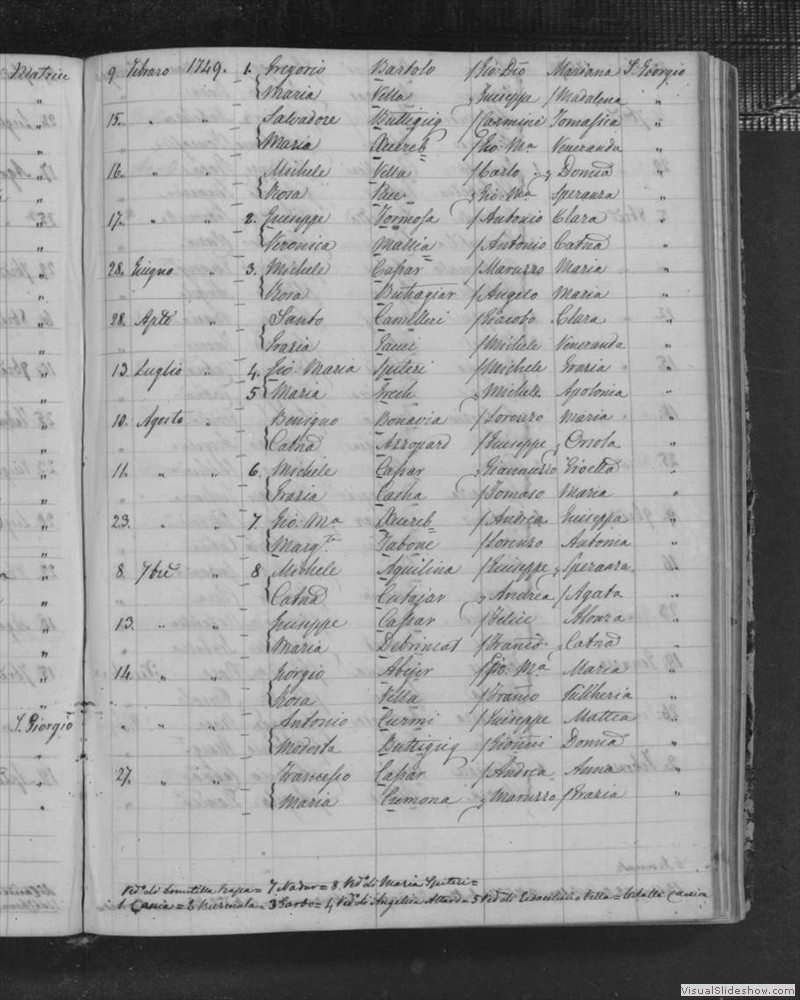 Matrice 9 Febraro 1749. 1. Gregorio Bartolo / Gio Dio Mariana S. Giorgio
" Maria Vella " Giuseppe / Madalena "
15. " " Salvadore Buttigieg / Carmine Tomasica "
Maria Xuereb " Gio Ma Veneranda "
16. " " Michele Vella / Carlo " Domca "
Rosa " Gio. Ma Speranza "
17. " " 2. Giuseppe Formosa / Antonio Clara "
Veronica Mallia / Antonio Catna "
28. Giugno " 3. Michele Caspar / Maruzzo Maria "
Rosa Buttagiar / Angelo Maria "
28. Aple " Santo Camilleri / Giacobo Clara "
Grazia / Michele Veneranda "
13. Luglio " 4. Gio. Maria Spiteri / Michele Grazia "
5 Maria Grech " Michele Apolonia "
10. Agosto " Benigno Bonavia / Lorenzo Maria "
Catna Azzopard / Giuseppe " Orsola "
11. " " 6. Michele Caspar " Giannuzzo Gioetta "
Grazia Cacha / Tomaso Maria "
23. " " 7. Gio. Ma Xuereb / Andrea Giuseppa "
Margta Tabone / Lorenzo Antonia "
8. 7bre " 8 Michele Aquilina / Giuseppe " Speranza "
Catna Cutajar " Andrea / Agata "
13. " " Giuseppe Caspar / Felice Alonza "
Maria Debrincat / Franco " Catna "
14. " " Giorgio Abejer / Gio. Ma Maria "
Rosa Vella / Franco Pullheria "
S. Giorgio " " " Antonio Curmi / Giuseppe Mattea "
Modesta Buttigieg / Domca "
27. " " Francesco Caspar / Andrea Anna "
Maria Cumona " Maruzzo / Grazia "
Veda di = 7 Nadur = 8. Veda di Maria Spiteri =
1. Caccia = 2. Burmola = 3 Garbo = 4 Veda di Angelica Attard = 5 Veda di Vella = 6 Caccia
VisualSlideshow.com